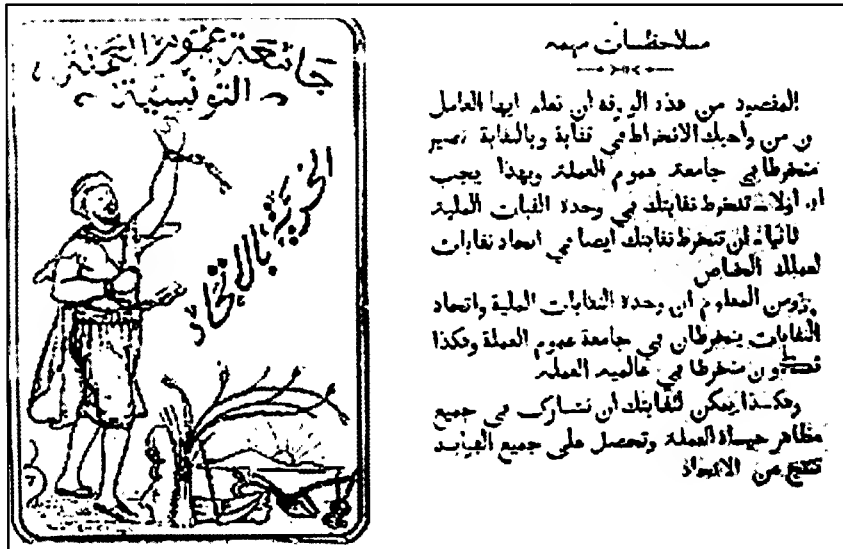 جامعة عموم العملة
التونسية
الحرية بالاتحاد
ملاحظات مهمة
المقصود من هذه الورقة ان تعلم ايها العامل
ان من واجبك الانخراط في نقابة وبالنقابة تصير
منخرطا في جامعة عموم العملة وبهذا يجب
اولا تنخرط نقابتك في وحدة النقابات المحلية
ثانيا ان تنخرط نقابتك ايضا في اتحاد نقابات
لعملك الخاص
ومن المعلوم ان وحدة النقابات المحلية واتحاد
النقابات ينخرطان في جامعة عموم العملة وهكذا
منخرطا في عالمية العملة
وهكذا يمكن لنقابتك ان تشارك في جميع
مظاهر حياة العملة وتحصل على جميع
تنتج عن الاتحاد